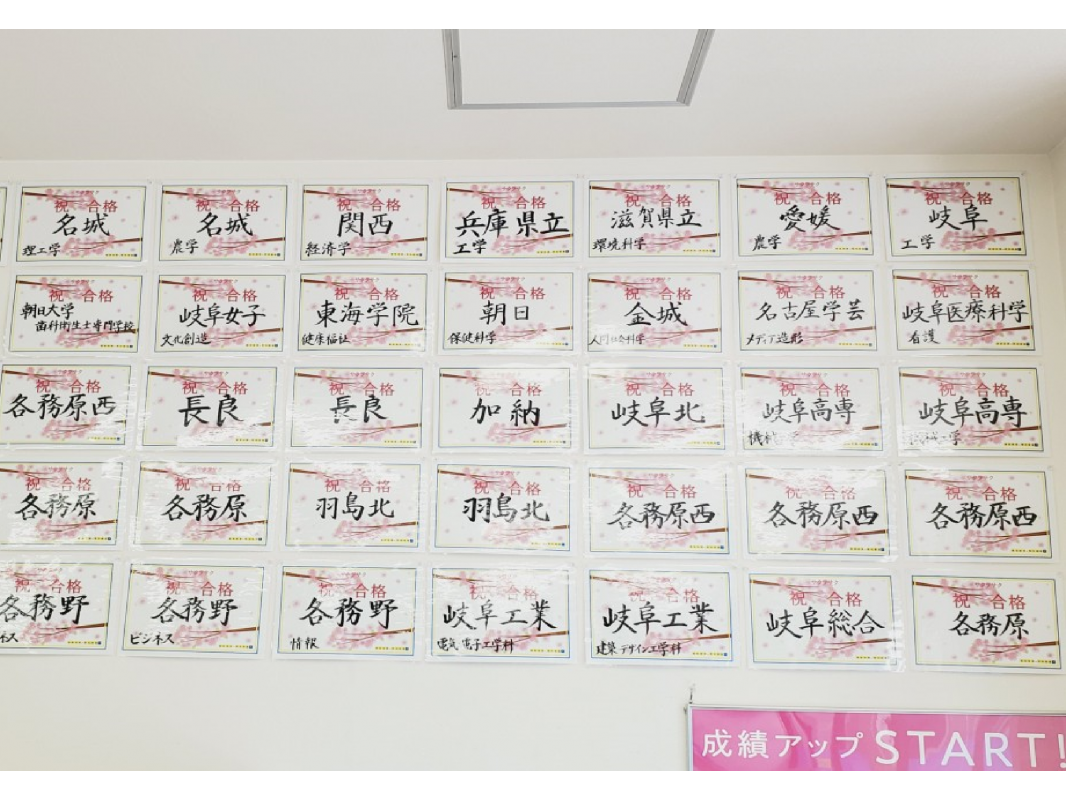 祝 合格
名城
理工学
祝 合格
名城
農学
祝 合格
関西
経済学
祝 合格
兵庫県立
工学
祝 合格
滋賀県立
環境科学
祝 合格
愛媛
農学
祝 合格
岐阜
工学
祝 合格
朝日大学
歯科衛生士専門学校
祝 合格
岐阜女子
文化創造
祝 合格
東海学院
健康福祉
祝 合格
朝日
保健科学
祝 合格
金城
人間社会科学
祝 合格
名古屋学芸
メディア造形
祝 合格
岐阜医療科学
看護
祝 合格
各務原西
祝 合格
長良
祝 合格
長良
祝 合格
加納
祝 合格
岐阜北
祝 合格
岐阜高専
機械工学
祝 合格
岐阜高専
機械工学
祝 合格
各務原
祝 合格
各務原
祝 合格
羽島北
祝 合格
羽島北
祝 合格
各務原西
祝 合格
各務原西
祝 合格
各務原西
祝 合格
各務野
ネス
祝 合格
各務野
ビジネス
祝 合格
各務野
情報
祝 合格
岐阜工業
電気電子工学科
祝 合格
岐阜工業
建築デザイン工学科
祝 合格
岐阜総合
祝 合格
各務原
成績アップ START!